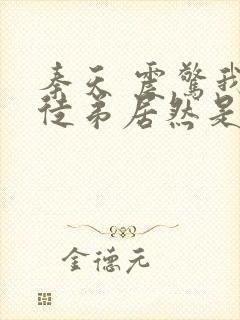 秦天 震惊我
徒弟居然是
金德元